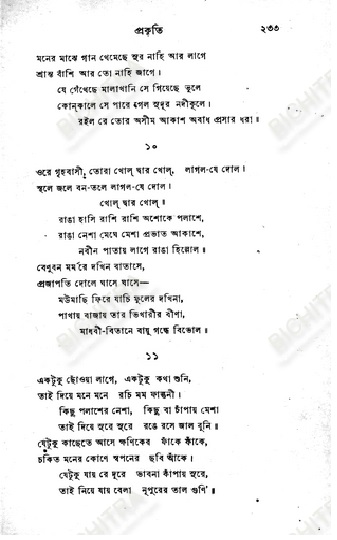 প্রকৃতি ২৩৩
মনের মাঝে গান থেমেছে সুর নাহি আর লাগে
শ্রান্ত বাঁশি আর তো নাহি জাগে।
যে গেঁথেছে মালাখানি সে গিয়েছে ভুলে
কোন্‌কালে সে পারে গেল সুদূর নদীকূলে।
রইল রে তোর অসীম আকাশ অবাধ প্রসার ধরা॥
১০
ওরে গৃহবাসী, তোরা খোল্‌ দ্বার খোল্‌, লাগল-যে দোল।
স্থলে জলে বন-তলে লাগল-যে দোল।
খোল্‌ দ্বার খোল্‌॥
রাঙা হাসি রাশি রাশি অশোকে পলাশে,
রাঙা নেশা মেঘে মেশা প্রভাত আকাশে,
নবীন পাতায় লাগে রাঙা হিল্লোল॥
বেণুবন মর্মরে দখিন বাতাসে,
প্রজাপতি দোলে ঘাসে ঘাসে—
মউমাছি ফিরে যাচি ফুলের দখিনা,
পাখায় বাজায় তার ভিখারীর বীণা,
মাধবী-বিতানে বায়ু গন্ধে বিভোল॥
১১
একটুকু ছোঁওয়া লাগে, একটুকু কথা শুনি,
তাই দিয়ে মনে মনে রচি মম ফাল্গুনী।
কিছু পলাশের নেশা, কিছু বা চাঁপায় মেশা
তাই দিয়ে সুরে সুরে রঙে রসে জাল বুনি॥
যেটুকু কাছেতে আসে ক্ষণিকের ফাঁকে ফাঁকে,
চকিত মনের কোণে স্বপনের ছবি আঁকে।
যেটুকু যায় রে দূরে ভাবনা কাঁপায় সুরে,
তাই নিয়ে যায় বেলা নূপুরের তাল গুণি॥
BICHITRA